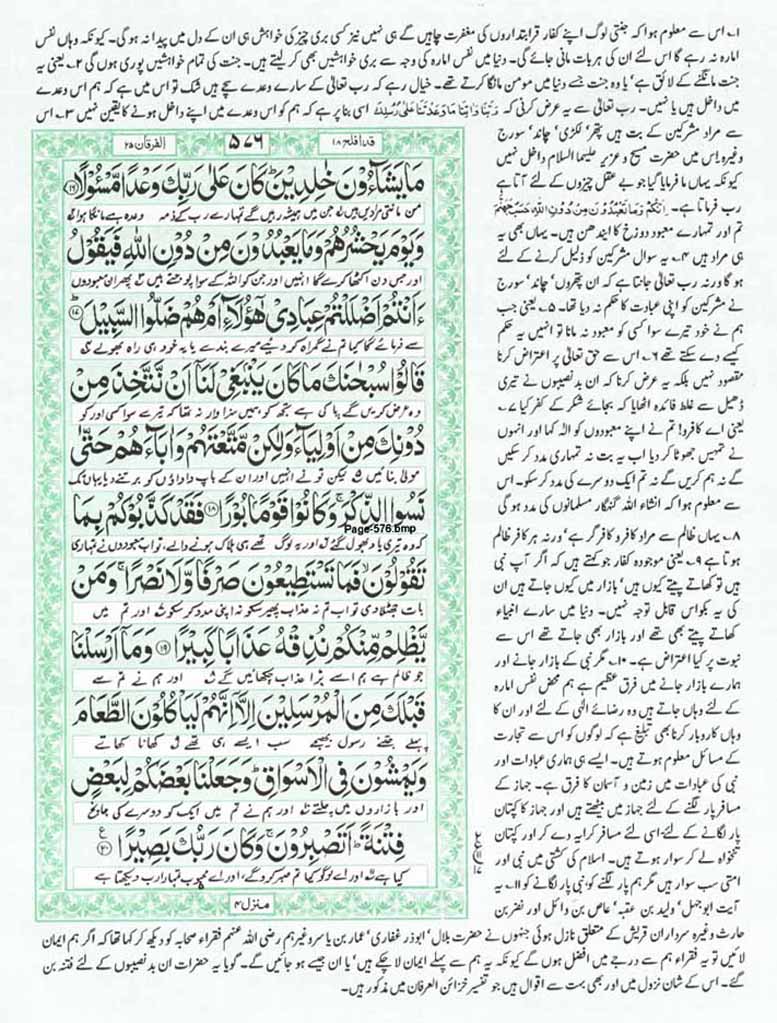 ۱؎ اس سے معلوم ہوا کہ جنتی لوگ اپنے کفار قرابتداروں کی مغفرت چاہیں گے ہی نہیں نیز کسی بری چیز کی خواہش ہی ان کے دل میں پیدا نہ ہو گی۔ کیونکہ وہاں نفس
امارہ نہ رہے گا اس لئے ان کی ہر بات مانی جائے گی۔ دنیا میں نفس امارہ کی وجہ سے بری خواہشیں بھی کر لیتے ہیں۔ جنت کی تمام خواہشیں پوری ہوں گی ۲؎ یعنی یہ
جنت مانگنے کے لائق ہے' یا وہ جنت جسے دنیا میں مومن مانگا کرتے تھے۔ خیال رہے کہ رب تعالیٰ کے سارے وعدے سچے ہیں شک تو اس میں ہے کہ ہم اس وعدے
میں داخل ہیں یا نہیں۔ رب تعالیٰ سے یہ عرض کرنی کہ رَبَّنَا وَاٰتِنَا مَا وَعَدْتَّنَا عَلٰی رُسُلِكَ اسی بنا پر ہے کہ ہم کو اس وعدے میں اپنے داخل ہونے کا یقین نہیں ۳؎ اس
سے مراد مشرکین کے بت ہیں پتھر' لکڑی' چاند' سورج
وغیرہ۔ اس میں حضرت مسیح و عزیر علیہما السلام داخل نہیں
کیونکہ یہاں ما فرمایا گیا جو بے عقل چیزوں کے لئے آتا ہے
رب فرماتا ہے۔ اِنَّكُمْ وَمَا تَعْبُدُوْنَ مِنْ دُوْنِ اللّٰهِ حَصَبُ جَهَنَّمَ
تم اور تمہارے معبود دوزخ کا ایندھن ہیں۔ یہاں بھی یہ
ہی مراد ہیں ۴؎ یہ سوال مشرکین کو ذلیل کرنے کے لئے
ہو گا ورنہ رب تعالیٰ جانتا ہے کہ ان پتھروں' چاند' سورج
نے مشرکین کو اپنی عبادت کا حکم نہ دیا تھا۔ ۵؎ یعنی جب
ہم نے خود تیرے سوا کسی کو معبود نہ مانا تو انہیں یہ حکم
کیسے دے سکتے تھے ۶؎ اس سے حق تعالیٰ پر اعتراض کرنا
مقصود نہیں بلکہ یہ عرض کرنا کہ ان بد نصیبوں نے تیری
ڈھیل سے غلط فائدہ اٹھایا کہ بجائے شکر کے کفر کیا ۷؎
یعنی اے کافرو! تم نے اپنے معبودوں کو الٰہ کہا اور انہوں
نے تمہیں جھوٹا کر دیا اب یہ بت نہ تمہاری مدد کر سکیں
گے نہ ہم کریں گے نہ تم ایک دوسرے کی مدد کر سکو۔ اس
سے معلوم ہوا کہ انشاء اللہ گنہگار مسلمانوں کی مدد ہو گی
۸؎ یہاں ظالم سے مراد کافر و کافر گر ہے' ورنہ ہر کافر ظالم
ہوتا ہے ۹؎ یعنی موجودہ کفار جو کہتے ہیں کہ اگر آپ نبی
ہیں تو کھاتے پیتے کیوں ہیں' بازار میں کیوں جاتے ہیں ان
کی یہ بکواس قابل توجہ نہیں۔ دنیا میں سارے انبیاء
کھاتے پیتے بھی تھے اور بازار بھی جاتے تھے اس سے
نبوت پر کیا اعتراض ہے۔ ۱۰؎ مگر نبی کے بازار جانے اور
ہمارے بازار جانے میں فرق عظیم ہے ہم محض نفس امارہ
کے لئے وہاں جاتے ہیں وہ رضائے الٰہی کے لئے اور ان کا
وہاں کاروبار کرنا بھی تبلیغ ہے کہ لوگوں کو اس سے تجارت
کے مسائل معلوم ہوتے ہیں۔ ایسے ہی ہماری عبادات اور
نبی کی عبادات میں زمین و آسمان کا فرق ہے۔ جہاز کے
مسافر پار لگنے کے لئے جہاز میں بیٹھتے ہیں اور جہاز کا کپتان
پار لگانے کے لئے' اسی لئے مسافر کرایہ دے کر اور کپتان
تنخواہ لے کر سوار ہوتے ہیں۔ اسلام کی کشتی میں نبی اور
امتی سب سوار ہیں مگر ہم پار لگنے کو نبی پار لگانے کو ۱۱؎ یہ
آیت ابو جہل' ولید بن عقبہ' عاص بن وائل اور نضر بن
قد افلح ۱۸
۵۷۶
الفرقان ۲۵
مَا يَشَآءُوْنَ خٰلِدِيْنَ ؕ كَانَ عَلٰى رَبِّكَ وَعْدًا مَّسْئُوْلًا ۝۱۶
من مانتی مرادیں ہیں جن میں ہمیشہ رہیں گے تمہارے رب کے ذمہ وعدہ ہے مانگا ہوا
وَيَوْمَ يَحْشُرُهُمْ وَمَا يَعْبُدُوْنَ مِنْ دُوْنِ اللّٰهِ فَيَقُوْلُ
اور جس دن اکٹھا کرے گا انہیں اور جن کو اللہ کے سوا پوجتے ہیں پھر ان معبودوں
ءَاَنْتُمْ اَضْلَلْتُمْ عِبَادِىْ هٰٓؤُلَآءِ اَمْ هُمْ ضَلُّوا السَّبِيْلَ ۝۱۷
سے فرمائے گا کیا تم نے گمراہ کر دیئے میرے بندے یا یہ خود ہی راہ بھولے
قَالُوْا سُبْحٰنَكَ مَا كَانَ يَنْۢبَغِىْ لَنَاۤ اَنْ نَّتَّخِذَ مِنْ
وہ عرض کریں گے پاکی ہے تجھ کو ہمیں سزاوار نہ تھا کہ تیرے سوا کسی اور کو
دُوْنِكَ مِنْ اَوْلِيَآءَ وَلٰكِنْ مَّتَّعْتَهُمْ وَاٰبَآءَهُمْ حَتّٰى
مولیٰ بنائیں لیکن تو نے انہیں اور ان کے باپ داداؤں کو برتنے دیا یہاں تک
نَسُوا الذِّكْرَ ۚ وَكَانُوْا قَوْمًۢا بُوْرًا ۝۱۸ فَقَدْ كَذَّبُوْكُمْ بِمَا
Page-576.bmp
کہ وہ تیری یاد بھول گئے اور یہ لوگ تھے ہی ہلاک ہونے والے، تو اب معبودوں نے تمہاری
تَقُوْلُوْنَ ۙ فَمَا تَسْتَطِيْعُوْنَ صَرْفًا وَّلَا نَصْرًا ۚ وَمَنْ
بات جھٹلا دی تو اب تم نہ عذاب پھیر سکو نہ اپنی مدد کر سکو اور تم میں
يَّظْلِمْ مِّنْكُمْ نُذِقْهُ عَذَابًا كَبِيْرًا ۝۱۹ وَمَاۤ اَرْسَلْنَا
جو ظالم ہے ہم اسے بڑا عذاب چکھائیں گے اور ہم نے تم سے
قَبْلَكَ مِنَ الْمُرْسَلِيْنَ اِلَّاۤ اِنَّهُمْ لَيَاْكُلُوْنَ الطَّعَامَ
پہلے جتنے رسول بھیجے سب ایسے ہی تھے کھانا کھاتے
وَيَمْشُوْنَ فِى الْاَسْوَاقِ ؕ وَجَعَلْنَا بَعْضَكُمْ لِبَعْضٍ
اور بازاروں میں چلتے اور ہم نے تم میں ایک کو دوسرے کی جانچ
فِتْنَةً ؕ اَتَصْبِرُوْنَ ۚ وَكَانَ رَبُّكَ بَصِيْرًا ۝۲۰
کیا ہے اور اے لوگو کیا تم صبر کرو گے اور اے محبوب تمہارا رب دیکھتا ہے
منزل ۴
حارث وغیرہ سرداران قریش کے متعلق نازل ہوئی جنہوں نے حضرت بلال' ابوذر غفاری' عمار بن یاسر وغیرہم رضی اللہ عنہم فقراء صحابہ کو دیکھ کر کہا تھا کہ اگر ہم ایمان
لائیں تو یہ فقراء ہم سے درجے میں افضل ہوں گے کیونکہ یہ ہم سے پہلے ایمان لا چکے ہیں' یا ان جیسے ہو جائیں گے۔ گویا یہ حضرات ان بد نصیبوں کے لئے فتنہ بن
گئے۔ اس کے شان نزول میں اور بھی بہت سے اقوال ہیں جو تفسیر خزائن العرفان میں مذکور ہیں۔